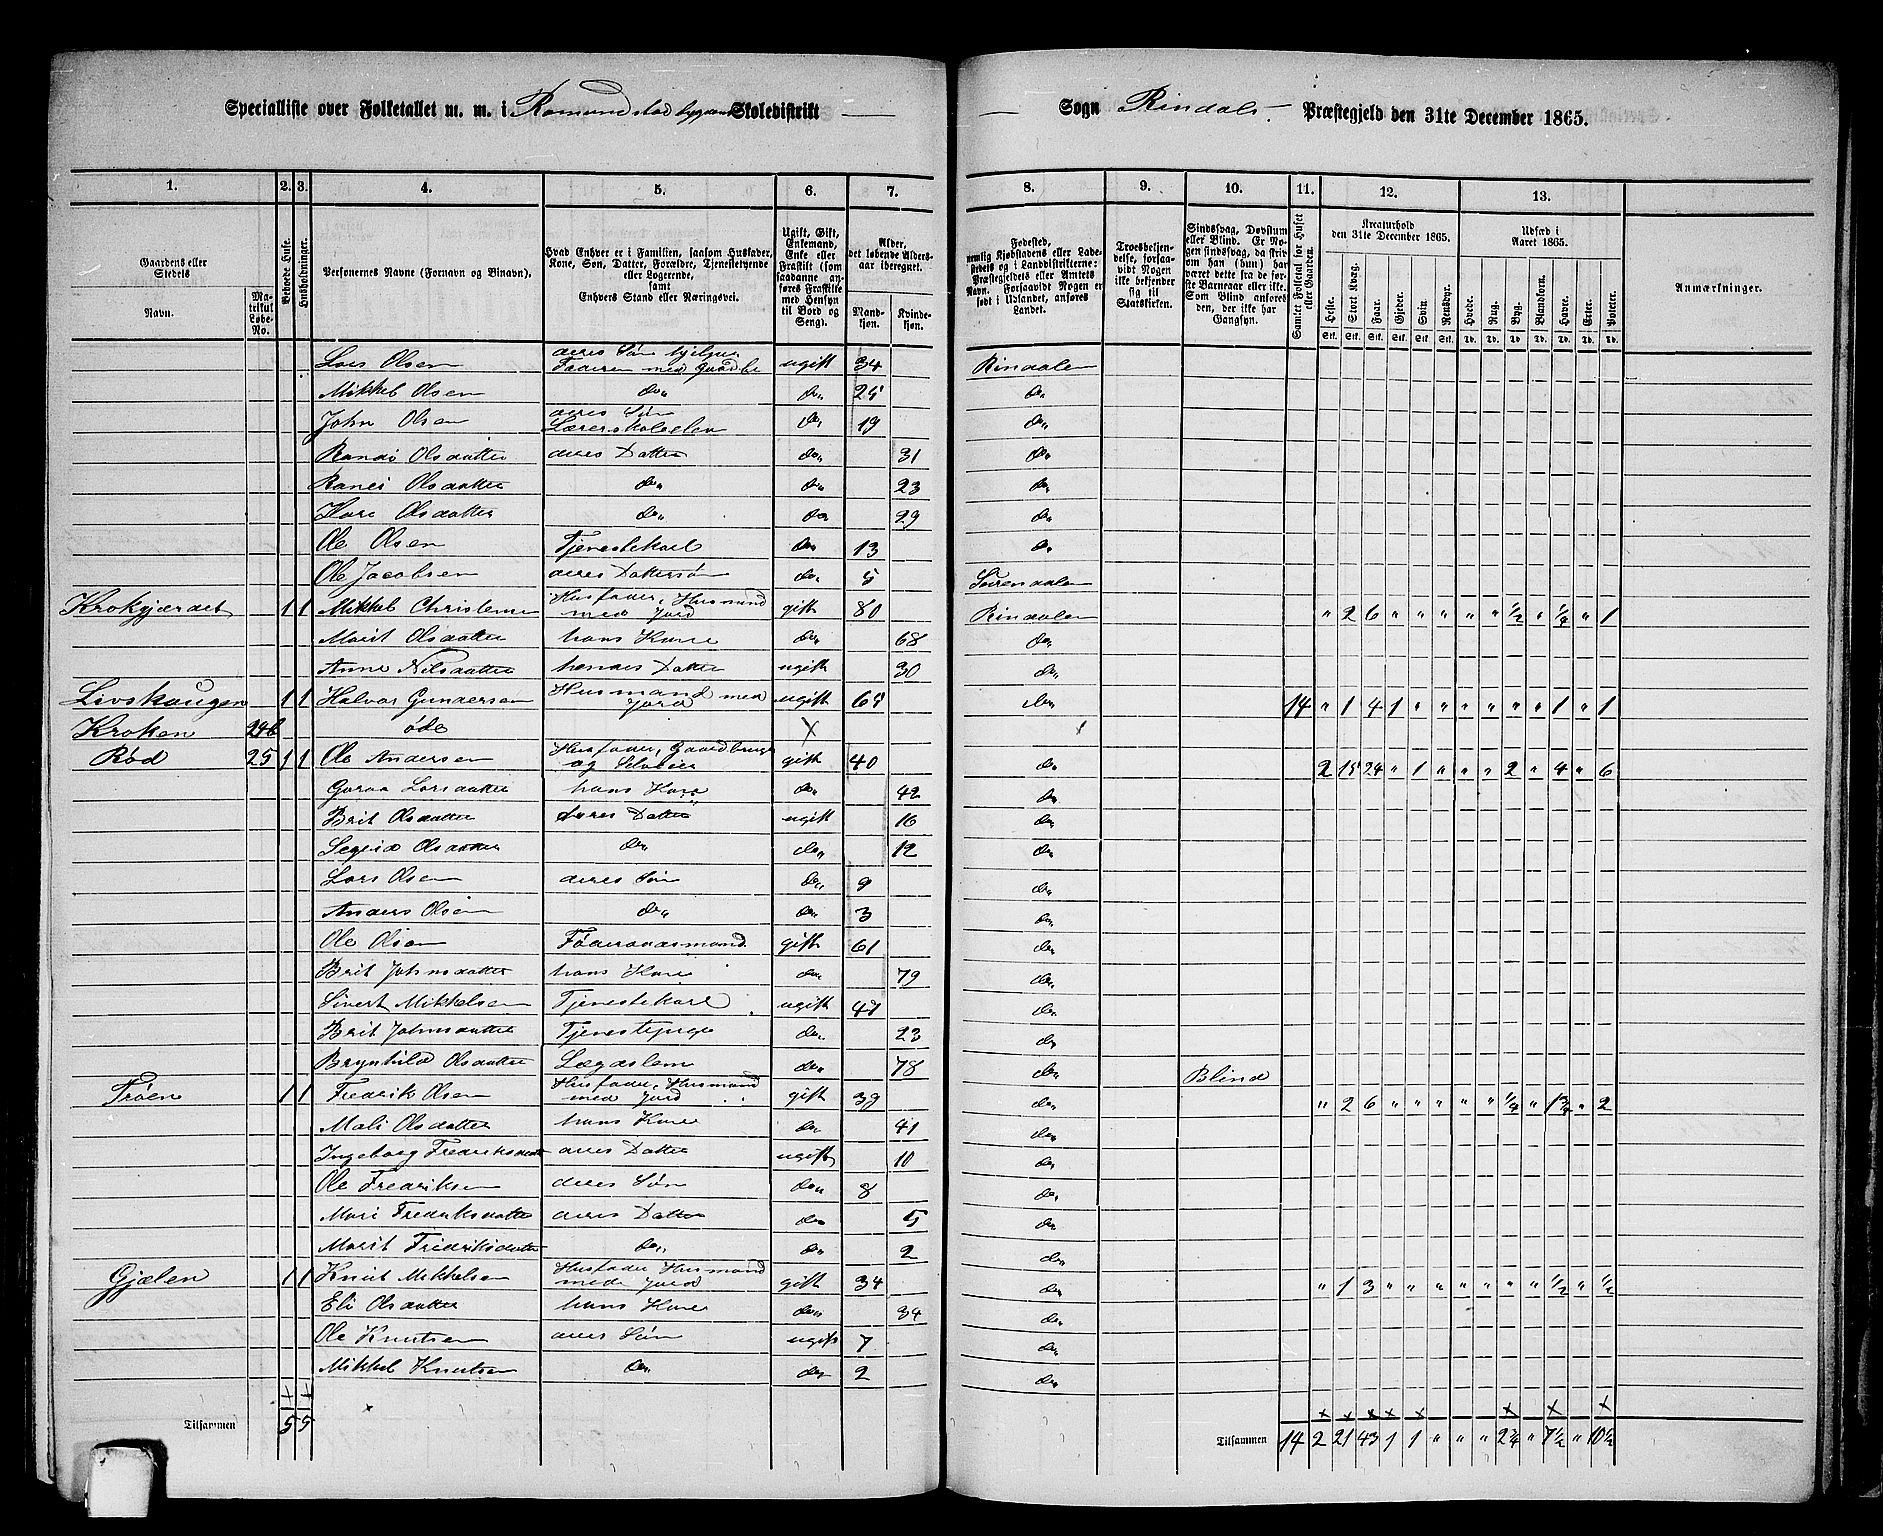 Specialliste over Folketallet m. m. i Romundstadbygdens Skoledistrikt — — Sogn Rindals Præstegjeld den 31te December 1865.
1. 2. 3. 4. 5. 6. 7. 8. 9. 10. 11. 12. 13.
Gaardens eller Stedets
Navn.
Matrikul Løbe-No.
Beboede Huse.
Husholdninger.
Personernes Navne (Fornavn og Binavn).
Hvad Enhver er i Familien, saasom Husfader, Kone, Søn, Datter, Forældre, Tjenestetyende eller Logerende, samt Enhvers Stand eller Næringsvei.
Ugift, Gift, Enkemand, Enke eller Fraskilt (som saadanne anføres Fraskilte med Hensyn til Bord og Seng).
Alder, det løbende Alders-aar iberegnet.
Mandkjøn. Kvindekjøn.
Fødested, nemlig Kjøbstadens eller Ladestedets og i Landdistrikterne: Præstegjeldets eller Amtets Navn. Forsaavidt Nogen er født i Udlandet, anføres Landet.
Troesbekjendelse, forsaavidt Nogen ikke bekjender sig til Statskirken.
Sindssvag, Døvstum eller Blind. Er Nogen sindssvag, da skriv om han (hun) har været dette fra de første Barneaar eller ikke. Som Blind anføres den, der ikke har Gangsyn.
Samlet Folketal for Huset eller Gaarden.
Kreaturhold den 31te December 1865.
Heste. Stort Kvæg. Faar. Gjeder. Svin. Rensdyr.
Udsæd i Aaret 1865.
Hvede. Rug. Byg. Blandkorn. Havre. Erter. Poteter.
Stk. Stk. Stk. Stk. Stk. Stk. Td. Td. Td. Td. Td. Td. Td.
Anmærkninger.
Lars Olsen deres Søn hjelper Faderen med Gaardbr ugift 34 Rindalen
Mikkel Olsen do „ do 25 do
John Olsen deres Søn Lærerskoleelev do 19 do
Randi Olsdatter deres Datter do 31 do
Ranei Olsdatter do do 23 do
Kari Olsdatter do do 29 do
Ole Olsen Tjenestekarl do 13 do
Ole Jacobsen deres Dattersøn do 5 Surendalen
Krokgjerdet 1 1 Mikkel Christensen Husfader, Husmand med Jord gift 80 Rindalen „ 2 6 „ „ „ „ „ ½ „ ¼ „ 1
Marit Olsdatter hans Kone do 68 do
Anne Nilsdatter hendes Datter ugift 30 do
Livskaugen 1 1 Halvor Gundersen Husmand med Jord ugift 65 do 14 „ 1 4 1 „ „ „ „ „ „ 1 „ 1
Kroken 24b øde × ×
Rød 25 1 1 Ole Andersen Husfader, Gaardbruger og Selveier gift 40 do 2 15 24 „ 1 „ „ „ 2 „ 4 „ 6
Guroa Larsdatter hans Kone do 42 do
Brit Olsdatter deres Datter ugift 16 do
Segrid Olsdatter do do 12 do
Lars Olsen deres Søn do 9 do
Anders Olsen do do 3 do
Ole Olsen Føderaadsmand gift 61 do
Brit Johnsdatter hans Kone do 79 do
Sivert Mikkelsen Tjenestekarl ugift 41 do
Brit Johnsdatter Tjenestepige do 23 do
Brynhild Olsdatter Lægdslem do 78 do Blind
Trøen 1 1 Fredrik Olsen Husfader, Husmand med Jord gift 39 do „ 2 6 „ „ „ „ „ ¼ „ 1¾ „ 2
Mali Olsdatter hans Kone do 41 do
Ingeborg Fredriksdatter deres Datter ugift 10 do
Ole Fredriksen deres Søn do 8 do
Mari Fredriksdatter deres Datter do 5 do
Marit Fredriksdatter do do 2 do
Gjælen 1 1 Knut Mikkelsen Husfader Husmand med Jord gift 34 do „ 1 3 „ „ „ „ „ „ „ ½ „ ½
Eli Olsdatter hans Kone do 34 do
Ole Knutsen deres Søn ugift 7 do
Mikkel Knutsen do do 2 do
Tilsammen 5 5 Tilsammen 14 2 21 43 1 1 „ „ „ 2¾ „ 7½ „ 10½